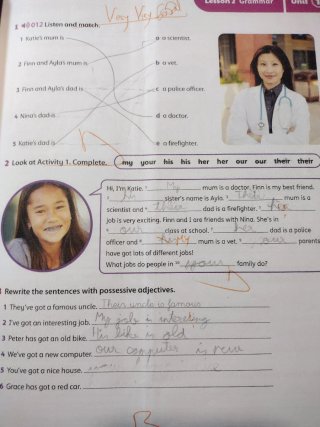 Lesson 2 Grammar Unit
Very Very Good
1 012 Listen and match.
1 Katie's mum is a a scientist.
2 Finn and Ayla's mum is b a vet.
3 Finn and Ayla's dad is c a police officer.
4 Nina's dad is d a doctor.
5 Katie's dad is e a firefighter.
2 Look at Activity 1. Complete. my your his his her her our our their their
Hi, I'm Katie. My mum is a doctor. Finn is my best friend.
his sister's name is Ayla. Their mum is a
scientist and their dad is a firefighter. his
job is very exciting. Finn and I are friends with Nina. She's in
our class at school. her dad is a police
officer and mum is a vet. our parents
have got lots of different jobs!
What jobs do people in 10 your family do?
Rewrite the sentences with possessive adjectives.
1 They've got a famous uncle. Their uncle is famous
2 I've got an interesting job. My job is interesting
3 Peter has got an old bike. His bike is old
4 We've got a new computer. our computer is new
5 You've got a nice house.
6 Grace has got a red car.